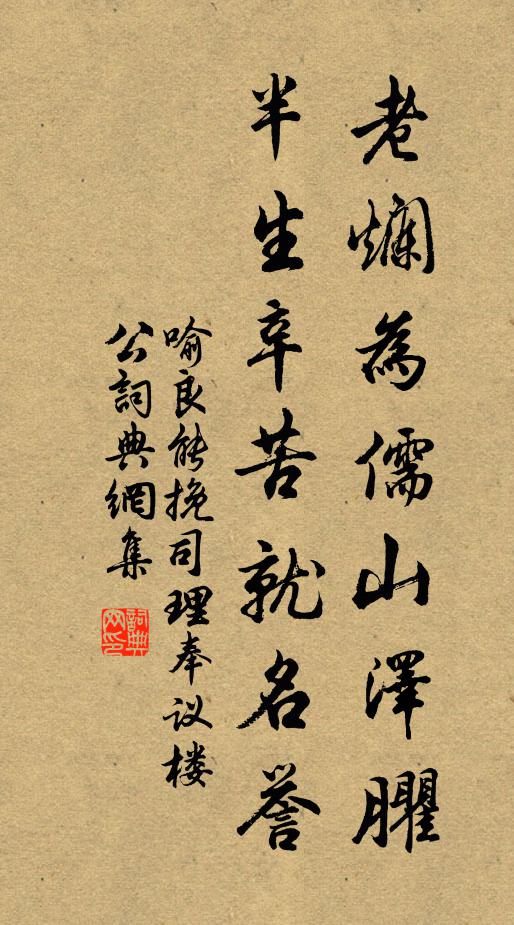 老爛為儒山澤臞
半生辛苦就名誉
喻良能挽司理奉议楼
公詞典網集
詞典网印